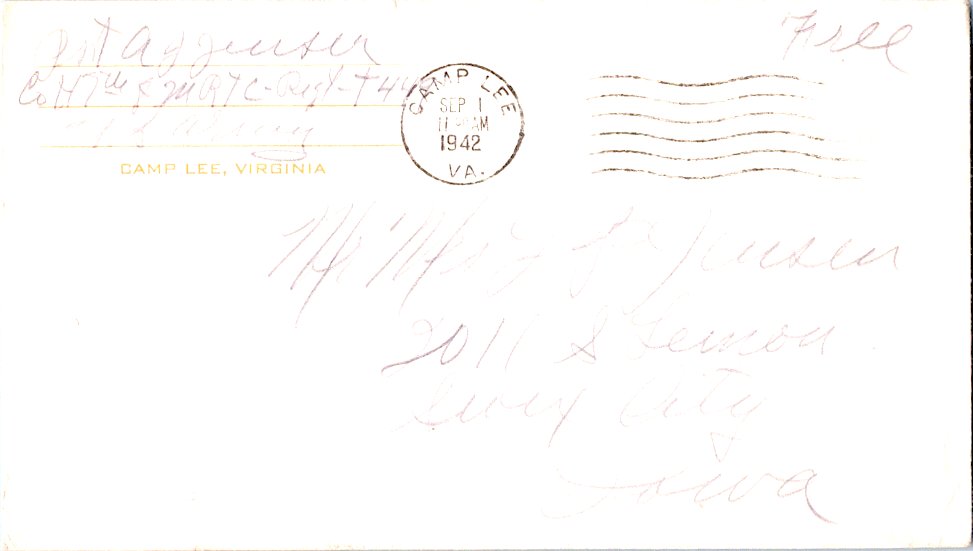 Pvt A J Jensen
Free
Co H 7th QMRTC-Regt-T446
CAMP LEE
SEP 1
11 AM
1942
VA.
CAMP LEE, VIRGINIA
Mr. Mrs L Jensen
2011 S Lemon
Sioux City
Iowa